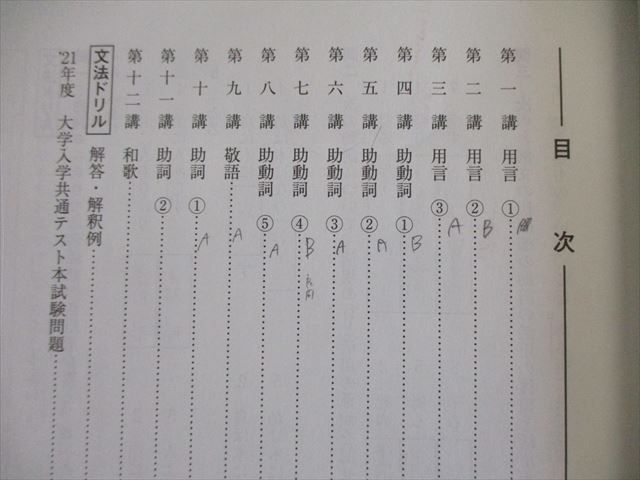 目次
第一講 用言 ①
第二講 用言 ② B
第三講 用言 ③ A
第四講 助動詞 ① B
第五講 助動詞 ② A
第六講 助動詞 ③ A
第七講 助動詞 ④ B
第八講 助動詞 ⑤ A
第九講 敬語 A
第十講 助詞 ① A
第十一講 助詞 ②
第十二講 和歌
文法ドリル 解答・解釈例
'21年度 大学入学共通テスト本試験問題